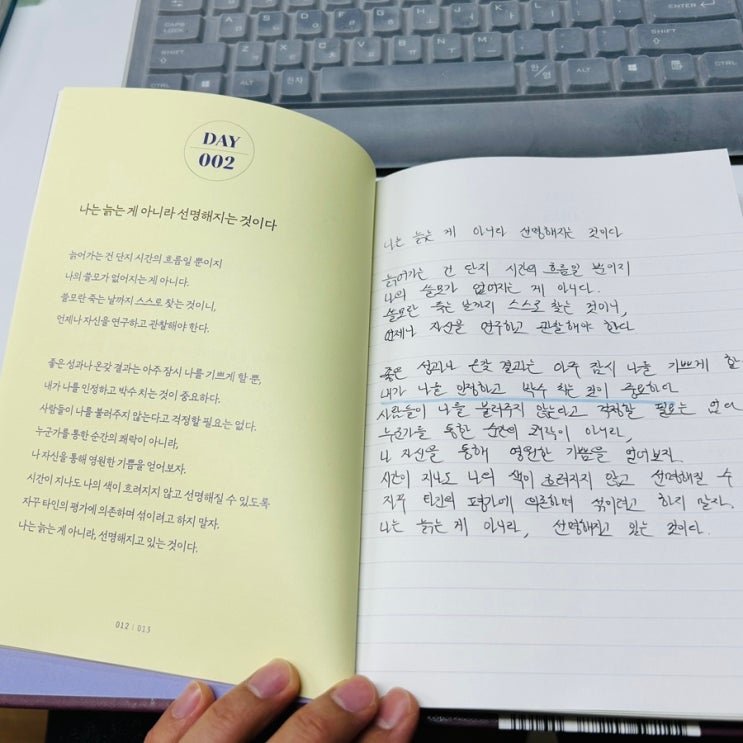 CAPS LOCK
ENTER
SHIFT
SHIFT
ALT
한자
한/영
ALT
CTRL
DAY
002
나는 늙는 게 아니라 선명해지는 것이다
늙어가는 건 단지 시간의 흐름일 뿐이지
나의 쓸모가 없어지는 게 아니다.
쓸모란 죽는 날까지 스스로 찾는 것이니,
언제나 자신을 연구하고 관찰해야 한다.
좋은 성과나 온갖 결과는 아주 잠시 나를 기쁘게 할 뿐,
내가 나를 인정하고 박수 치는 것이 중요하다.
사람들이 나를 불러주지 않는다고 걱정할 필요는 없다.
누군가를 통한 순간의 쾌락이 아니라,
나 자신을 통해 영원한 기쁨을 얻어보자.
시간이 지나도 나의 색이 흐려지지 않고 선명해질 수 있도록
자꾸 타인의 평가에 의존하며 섞이려고 하지 말자.
나는 늙는 게 아니라, 선명해지고 있는 것이다.
012 | 013
나는 늙는 게 아니라 선명해지는 것이다
늙어가는 건 단지 시간의 흐름일 뿐이지
나의 쓸모가 없어지는 게 아니다.
쓸모란 죽는 날까지 스스로 찾는 것이니,
언제나 자신을 연구하고 관찰해야 한다
좋은 성과나 온갖 결과는 아주 잠시 나를 기쁘게 할
내가 나를 인정하고 박수 치는 것이 중요하다
사람들이 나를 불러주지 않는다고 걱정할 필요는 없
누군가를 통한 순간의 쾌락이 아니라,
나 자신을 통해 영원한 기쁨을 얻어보자.
시간이 지나도 나의 색이 흐려지지 않고 선명해질 수
자꾸 타인의 평가에 의존하며 섞이려고 하지 말자.
나는 늙는 게 아니라, 선명해지고 있는 것이다.